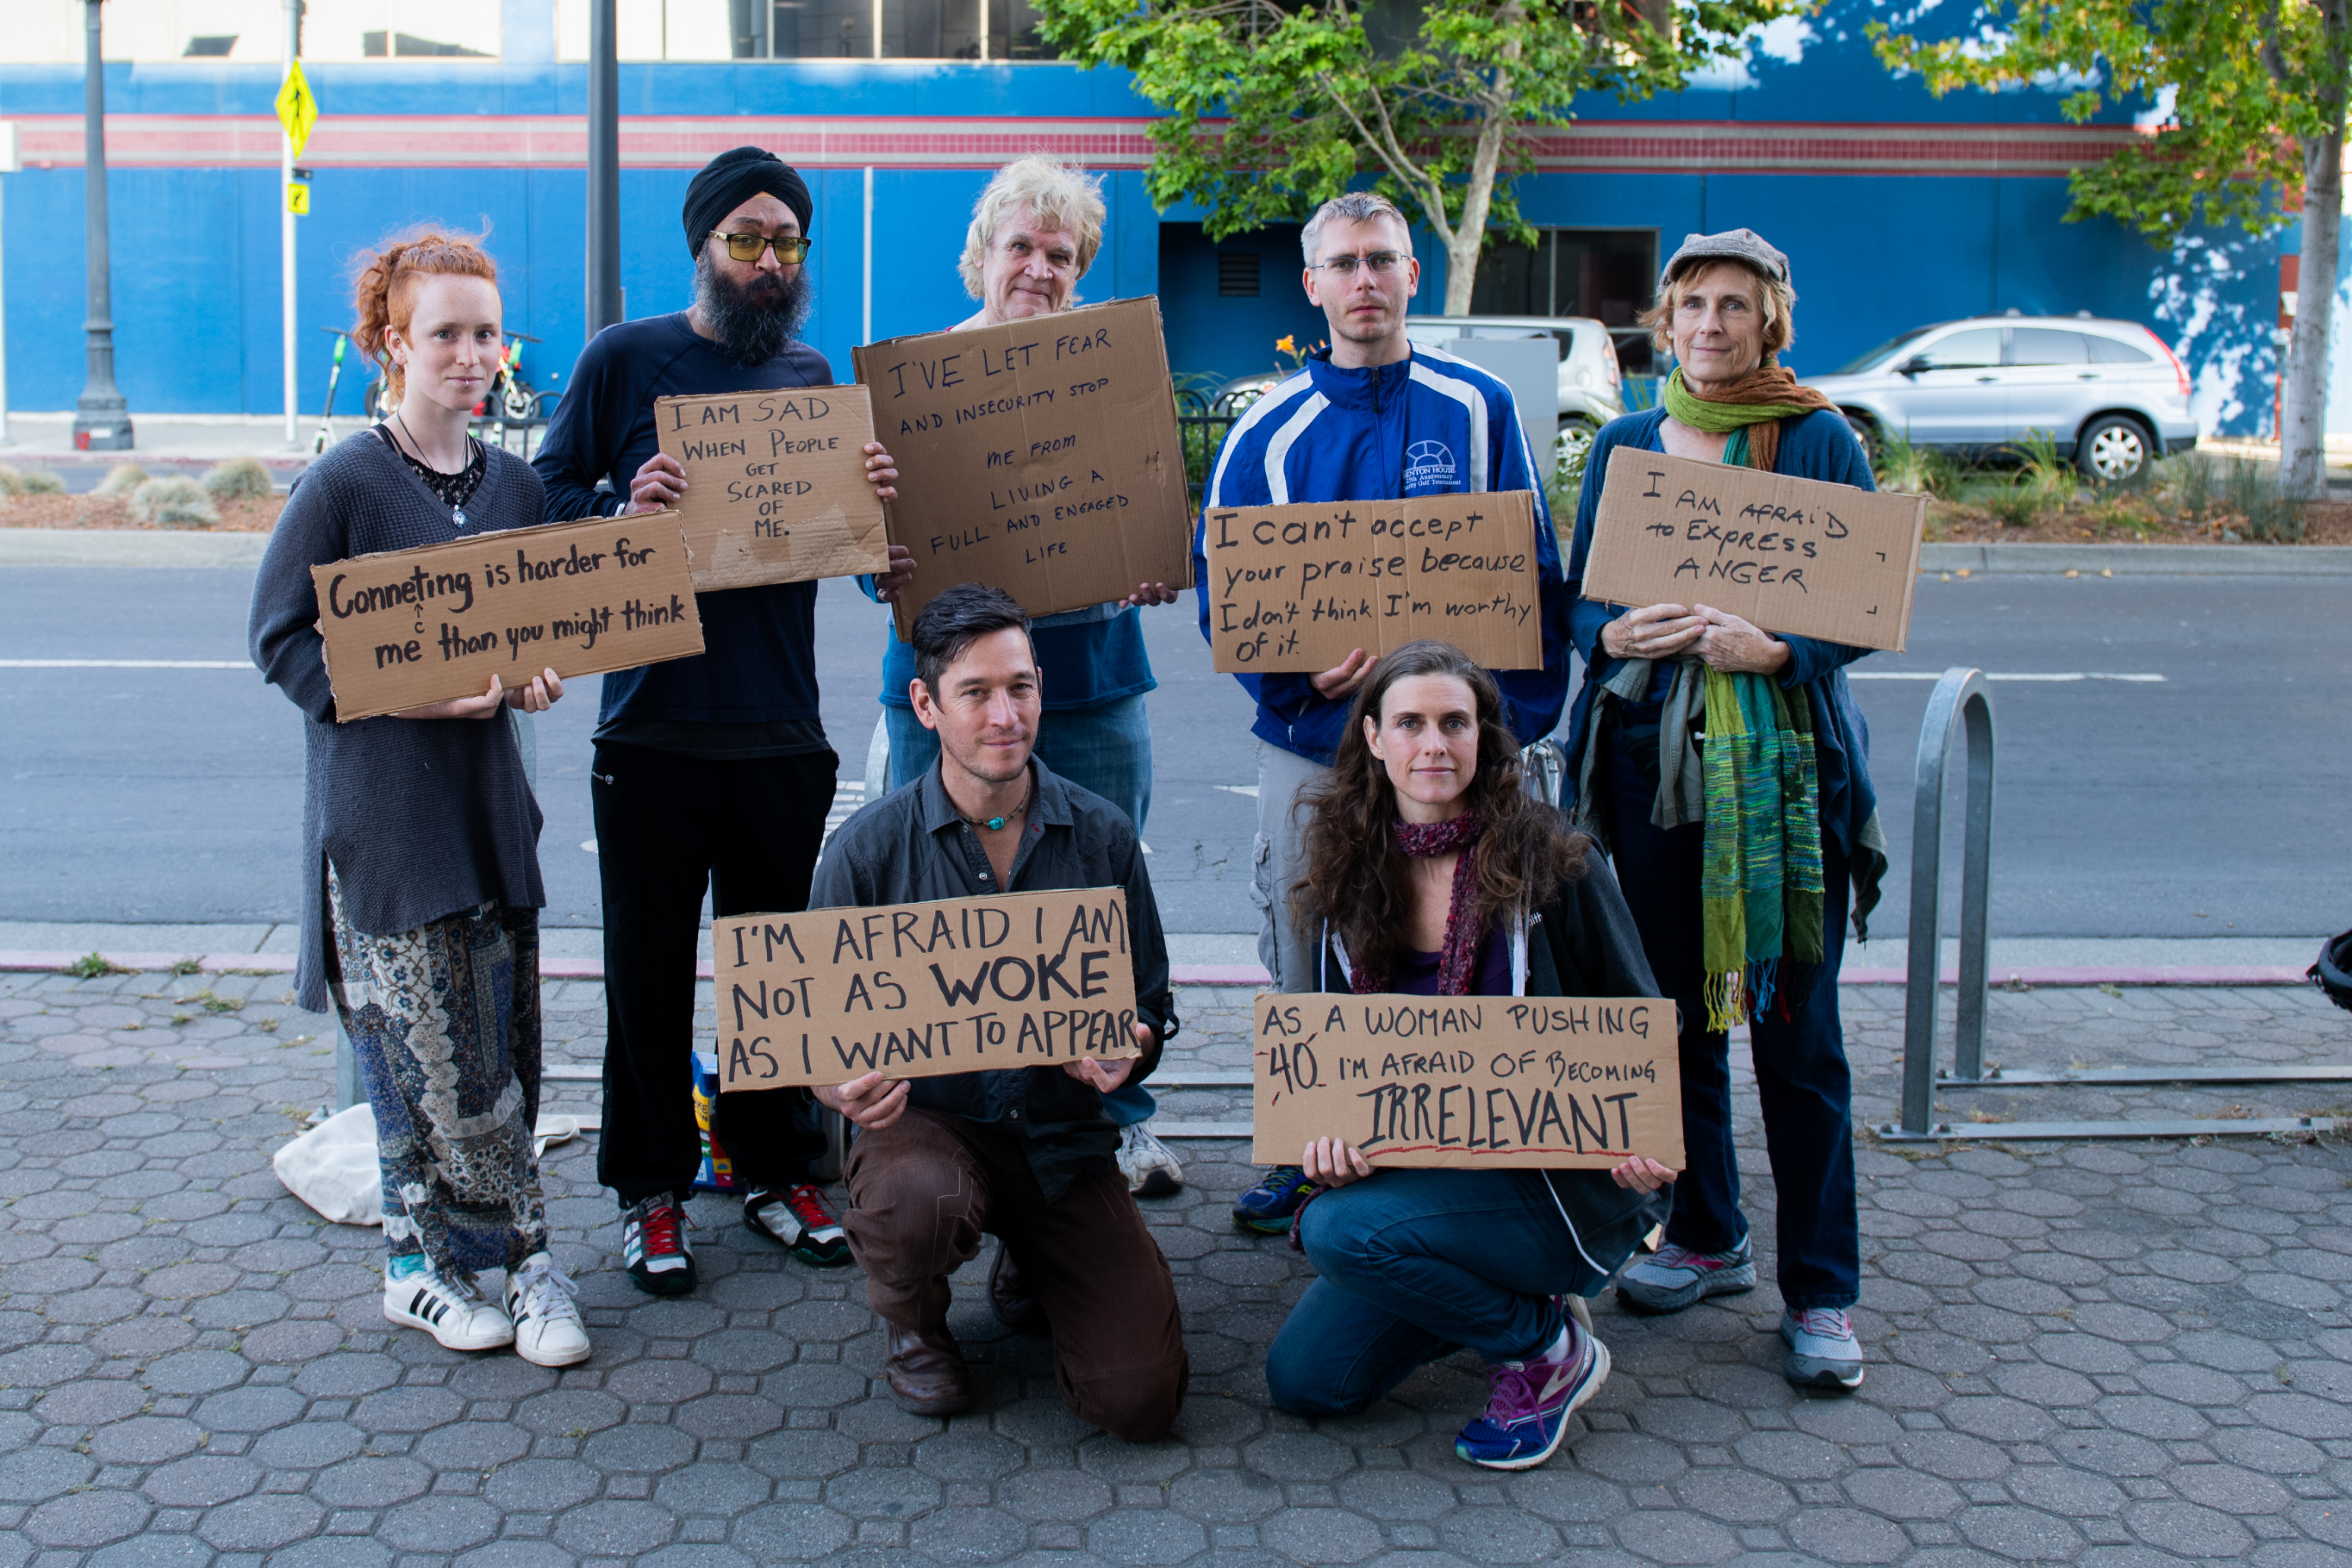 Conneting is harder for
c
me than you might think
I AM SAD
WHEN PEOPLE
GET
SCARED
OF
ME.
I'VE LET FEAR
AND INSECURITY STOP
ME FROM
LIVING A
FULL AND ENGAGED
LIFE
I can't accept
your praise because
I don't think I'm worthy
of it.
I AM AFRAID
to EXPRESS
ANGER
I'M AFRAID I AM
NOT AS WOKE
AS I WANT TO APPEAR
AS A WOMAN PUSHING
40 I'M AFRAID OF BECOMING
IRRELEVANT
HOUSE
Anniversary
Golf Tournament